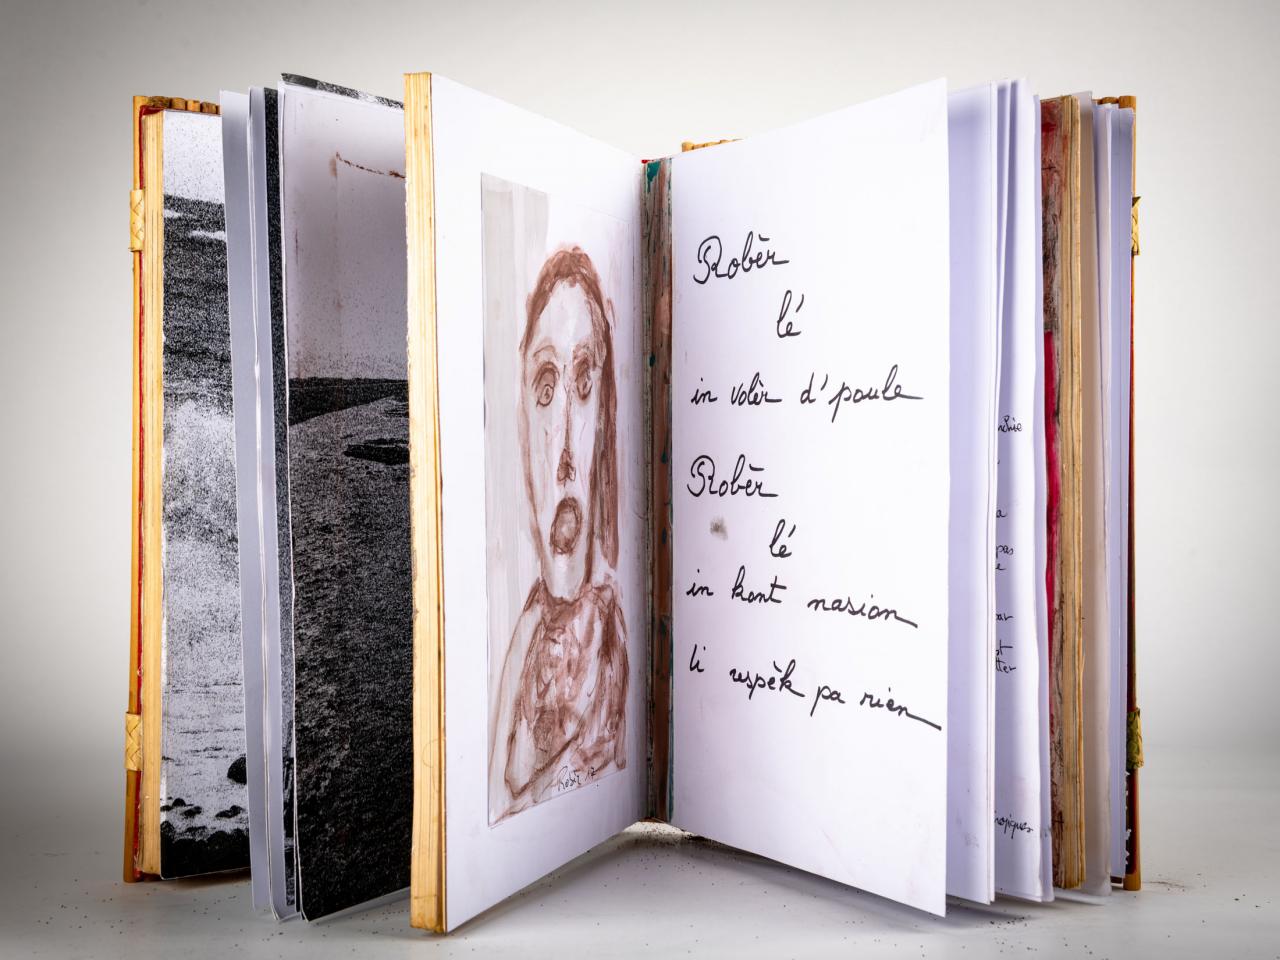 Robèr
lé
in volèr d'poule
Robèr
lé
in kont nasion
li respèk pa rien
a
pas
e
ar
st
tter